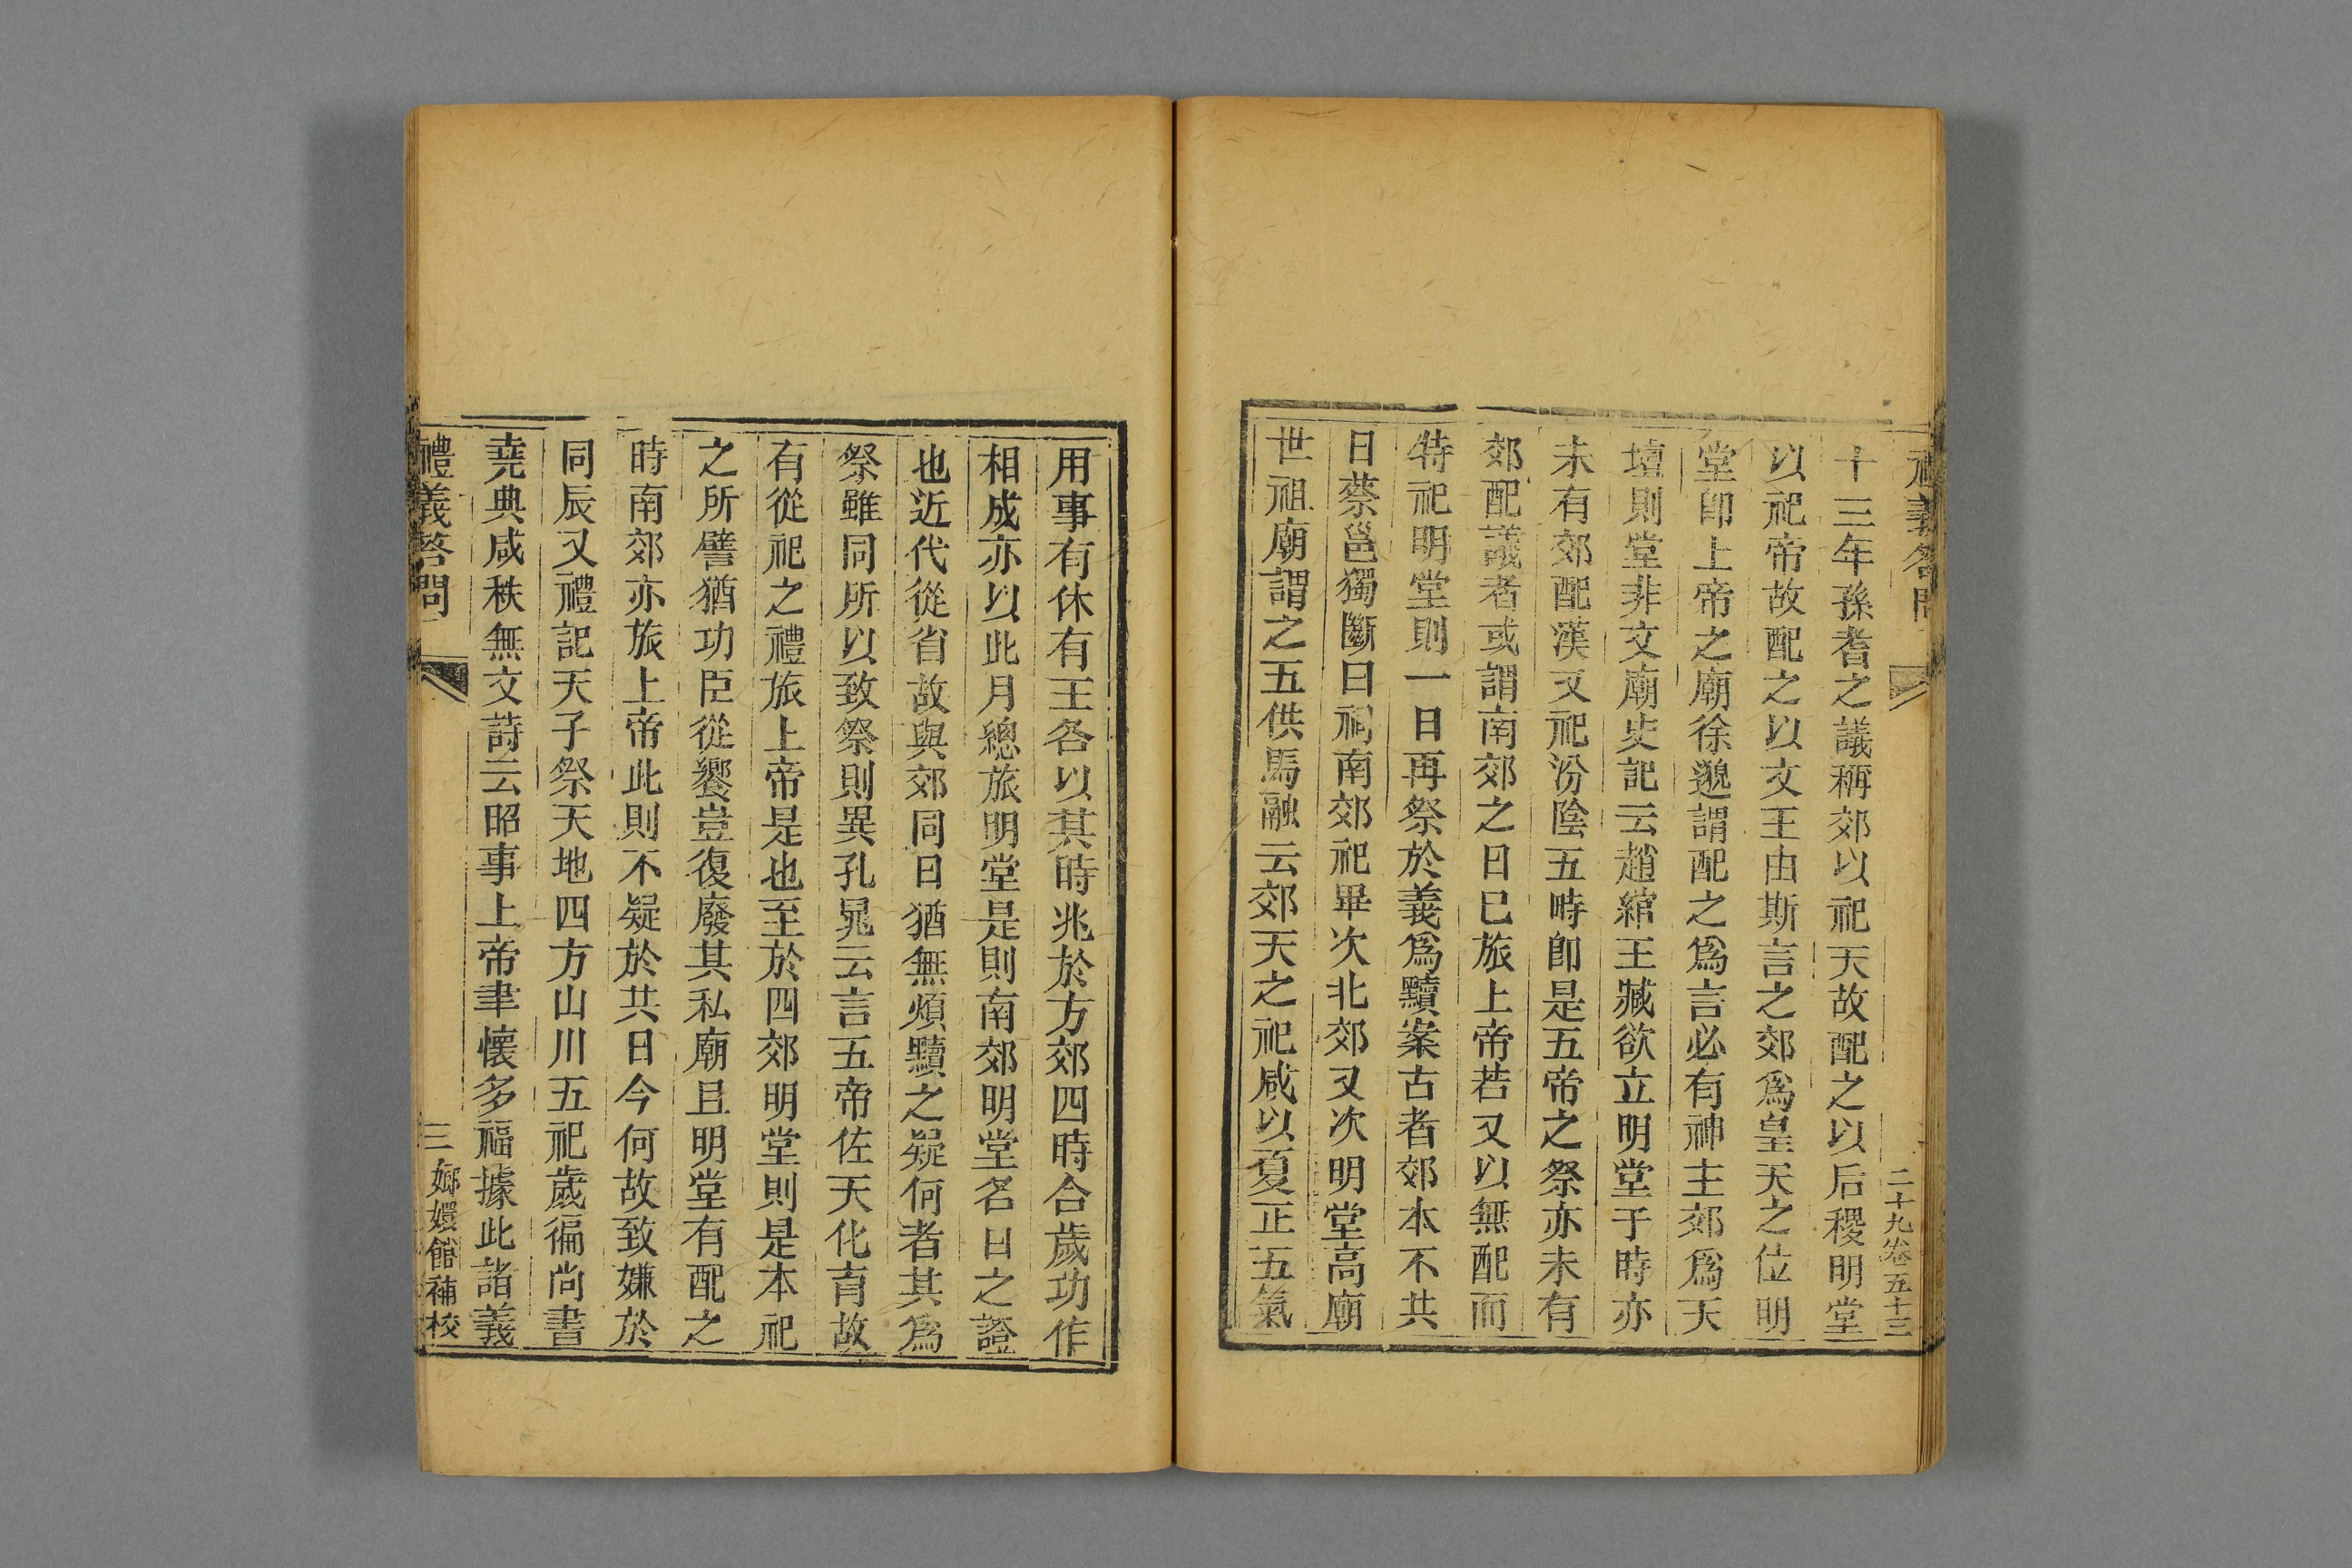 禮義答問
二十九卷五十三
十三年孫耆之議稱郊以祀天故配之以后稷明堂
以祀帝故配之以文王由斯言之郊爲皇天之位明
堂卽上帝之廟徐邈謂配之爲言必有神主郊爲天
壇則堂非文廟史記云趙綰王臧欲立明堂于時亦
未有郊配漢又祀汾陰五時卽是五帝之祭亦未有
郊配議者或謂南郊之日已旅上帝若又以無配而
特祀明堂則一日再祭於義爲黷案古者郊本不共
日蔡邕獨斷曰祠南郊祀畢次北郊又次明堂高廟
世祖廟謂之五供馬融云郊天之祀咸以夏正五氣
用事有休有王各以其時兆於方郊四時合歲功作
相成亦以此月總旅明堂是則南郊明堂名日之證
也近代從省故與郊同日猶無煩黷之疑何者其爲
祭雖同所以致祭則異孔晁云言五帝佐天化育故
有從祀之禮旅上帝是也至於四郊明堂則是本祀
之所譬猶功臣從饗豈復廢其私廟且明堂有配之
時南郊亦旅上帝此則不疑於共日今何故致嫌於
同辰又禮記天子祭天地四方山川五祀歲徧尚書
堯典咸秩無文詩云昭事上帝聿懷多福據此諸義
禮義答問
三 嫏嬛館補校